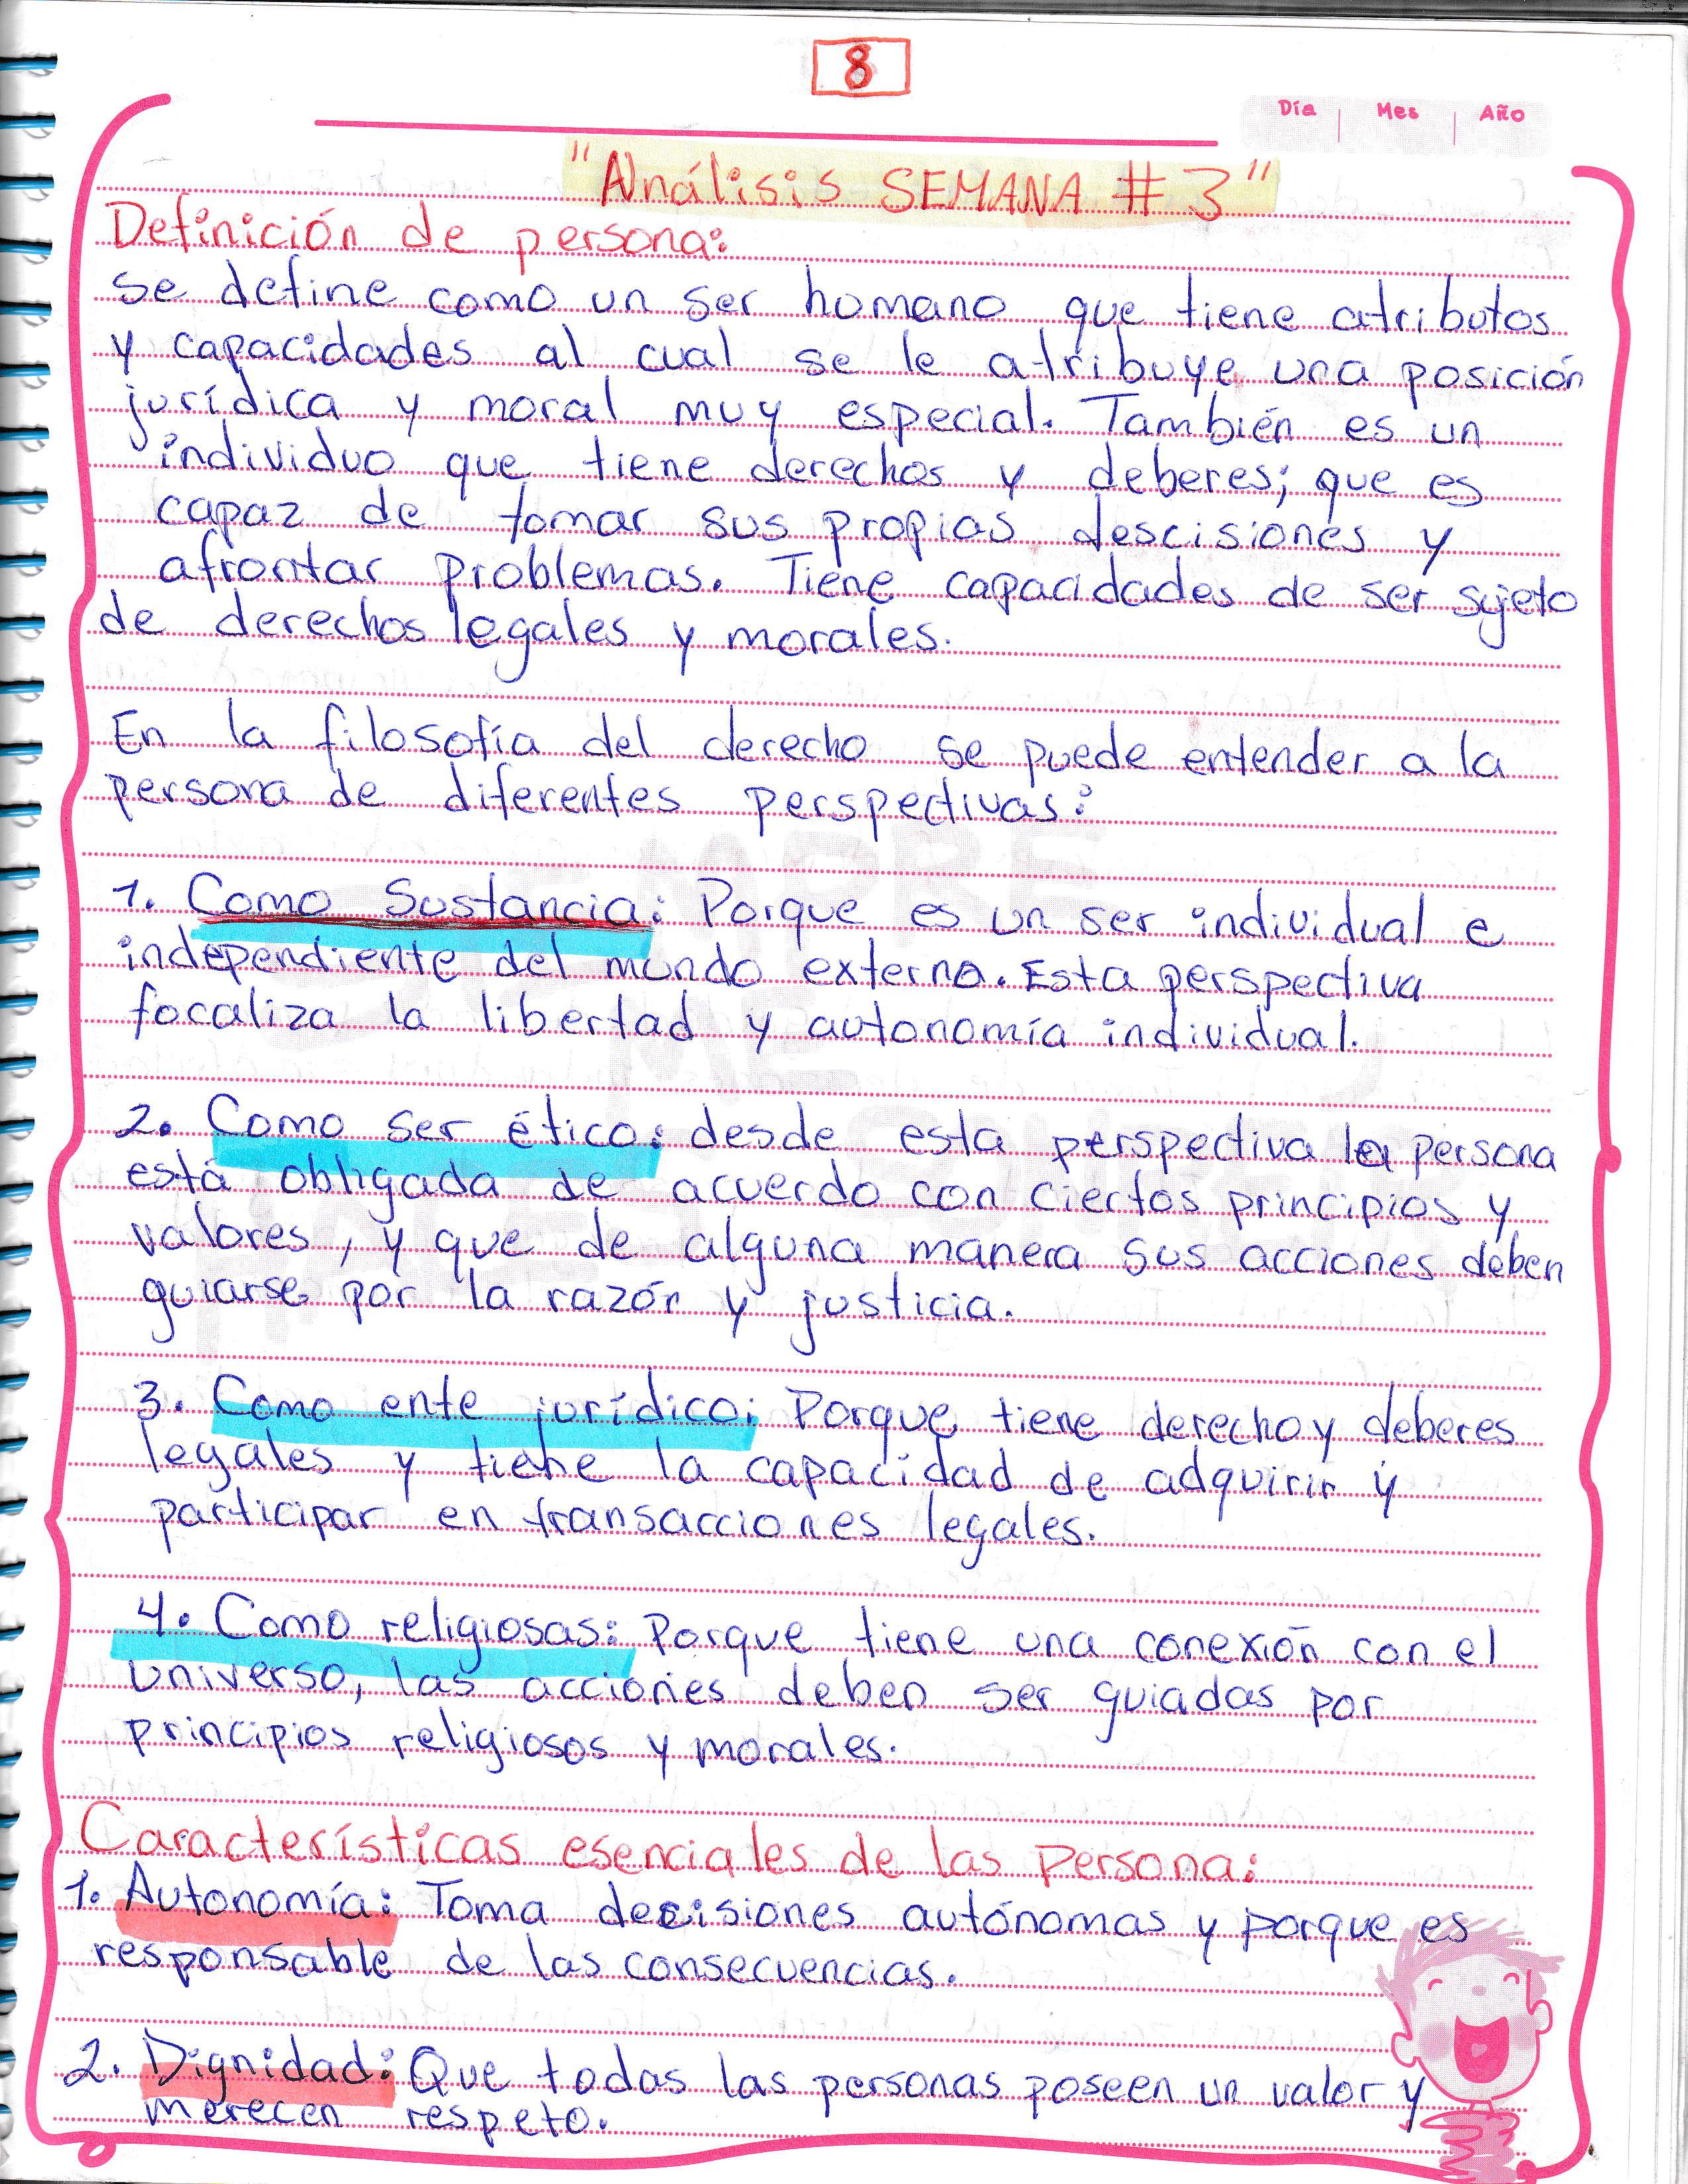 8
Día | Mes | Año
"Análisis SEMANA # 3"
Definición de persona:
se define como un ser humano que tiene atributos
y capacidades al cual se le atribuye una posición
jurídica y moral muy especial. También es un
individuo que tiene derechos y deberes; que es
capaz de tomar sus propias descisiones y
afrontar problemas. Tiene capacidades de ser sujeto
de derechos legales y morales.
En la filosofía del derecho se puede entender a la
persona de diferentes perspectivas:
1. Como Sustancia: Porque es un ser individual e
independiente del mundo externo. Esta perspectiva
focaliza la libertad y autonomía individual.
2. Como ser ético: desde esta perspectiva la persona
está obligada de acuerdo con ciertos principios y
valores, y que de alguna manera sus acciones deben
guiarse por la razón y justicia.
3. Como ente jurídico: Porque tiene derecho y deberes
legales y tiene la capacidad de adquirir y
participar en transacciones legales.
4. Como religiosas: Porque tiene una conexión con el
universo, las acciones deben ser guiadas por
principios religiosos y morales.
Características esenciales de las Persona:
1. Autonomía: Toma decisiones autónomas y porque es
responsable de las consecuencias.
2. Dignidad: Que todas las personas poseen un valor y
merecen respeto.